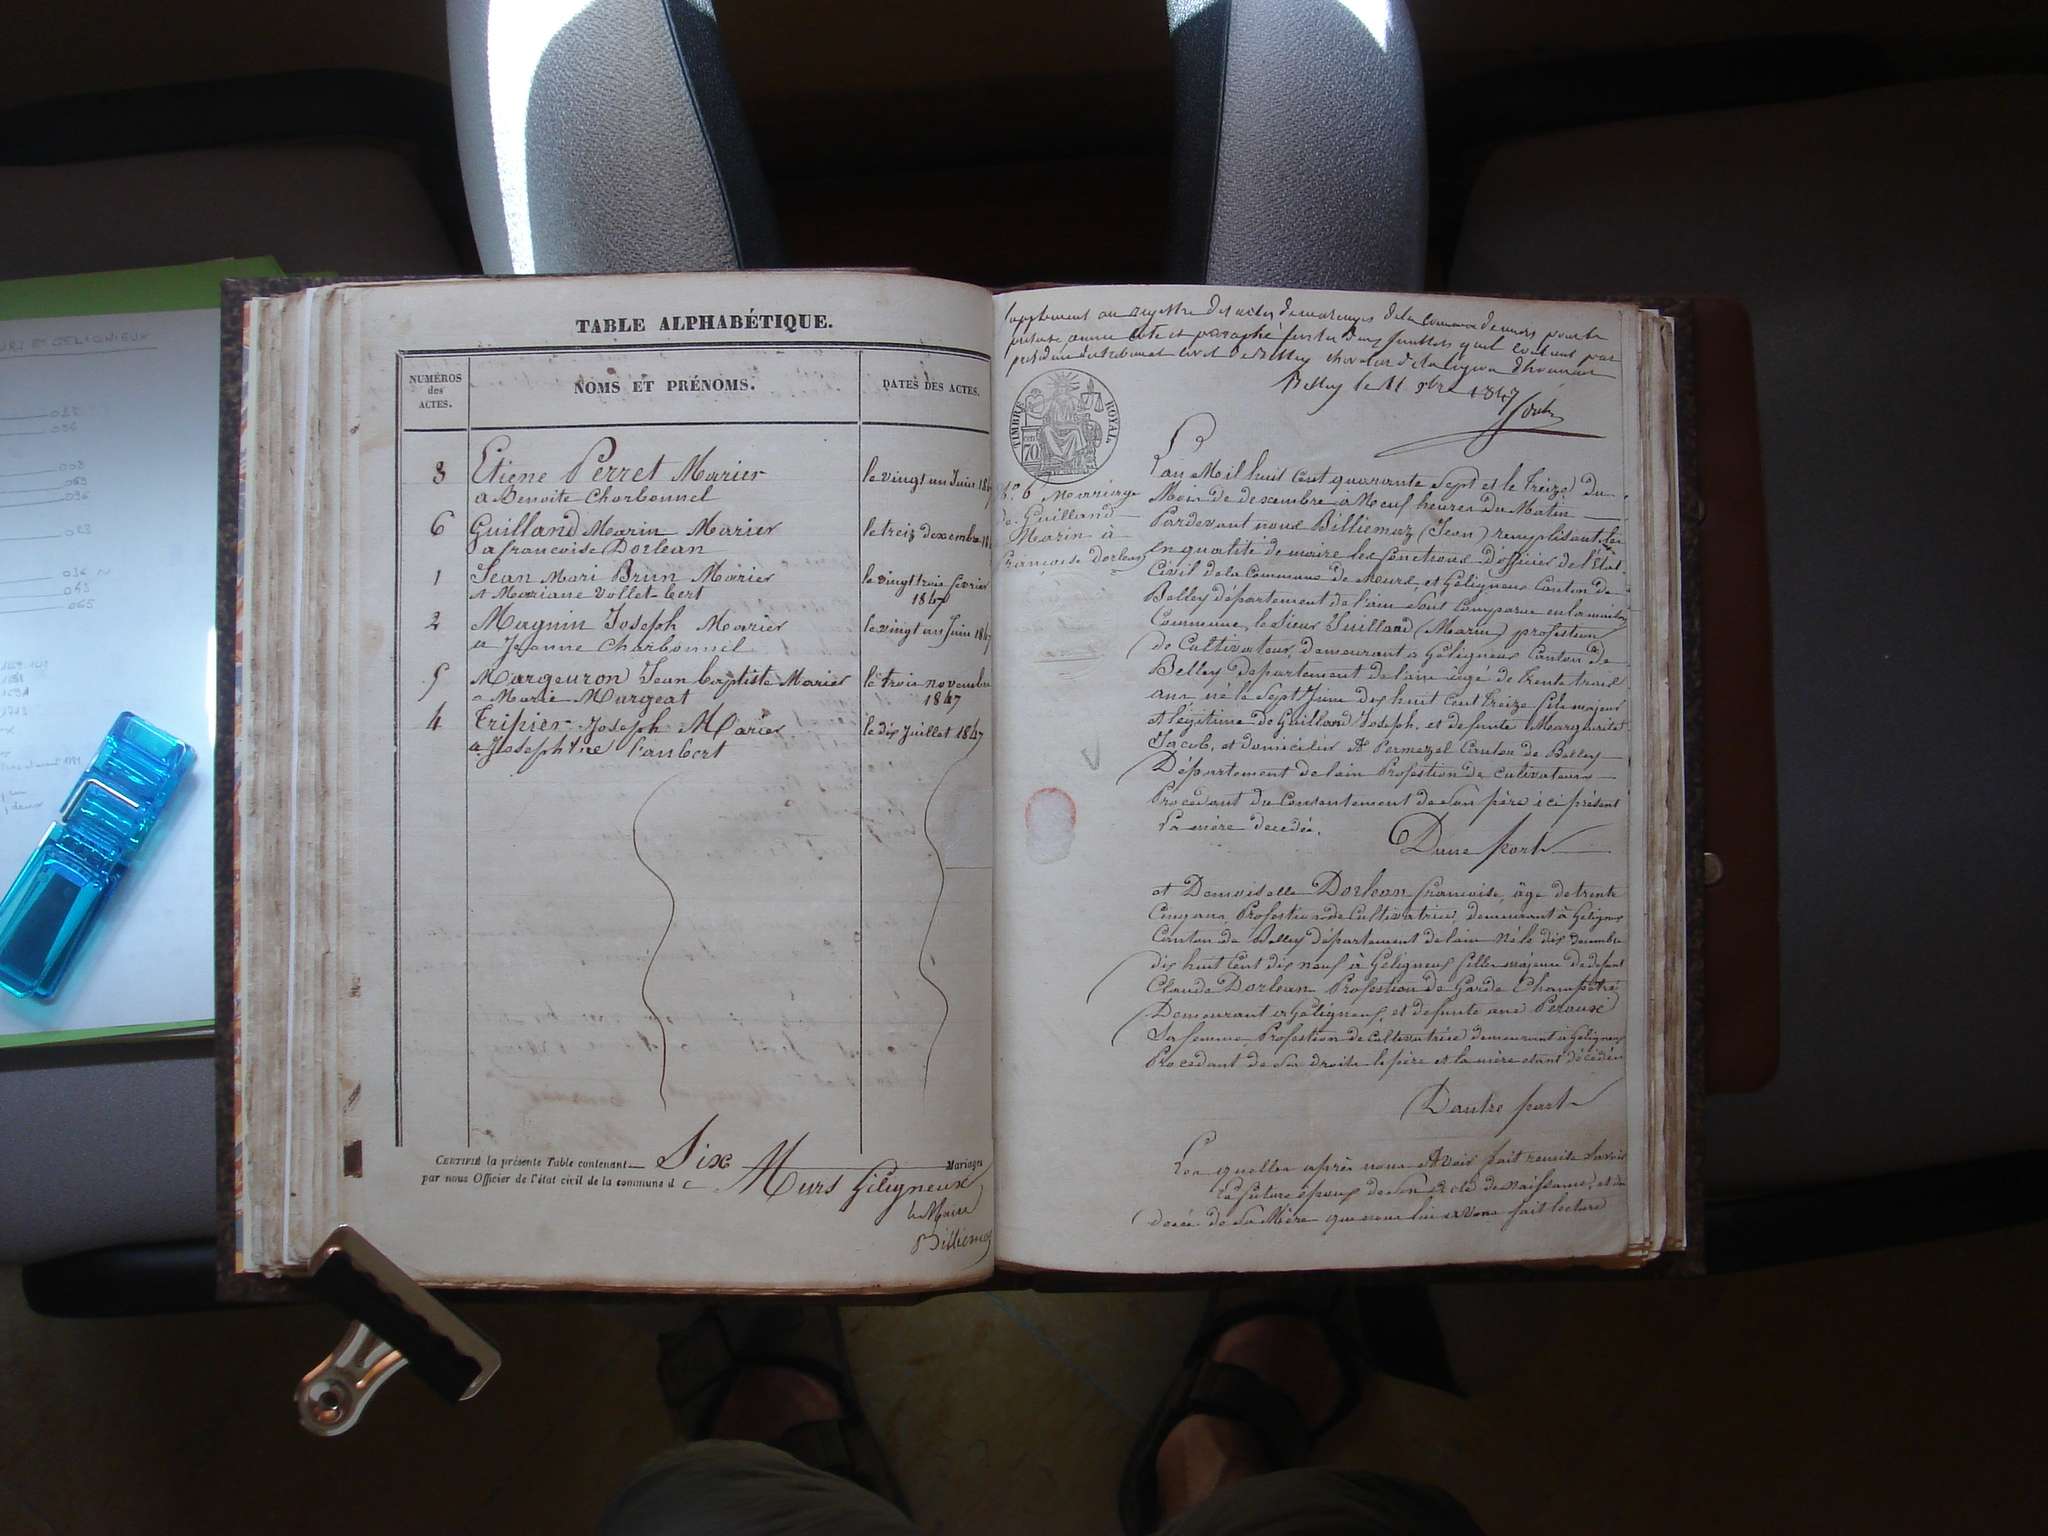 TABLE ALPHABÉTIQUE.
NUMÉROS des ACTES.
NOMS ET PRÉNOMS.
DATES DES ACTES.
3 Etiene Perret Marier le vingt un Juin 184
a Benoite Charbonnel
6 Guilland Marin Marier le treiz dexembre 18
a francoise Dorlean
1 Jean Mari Brun Marier le vingt trois fevrier
et Mariane Vollet-bert 1847
2 Magnin Joseph Marier le vingt un Juin 1847
a Jeanne Charbonnel
5 Margeuron Jean baptiste Marier le trois novembre
a Marie Margeat 1847
4 Tripier Joseph Marier le dix Juillet 1847
a Josephine Lambert
CERTIFIÉ la présente Table contenant Six Mariages
par nous Officier de l'état civil de la commune d e Murs Géligneux
le Maire
Billiemaz
supplement au registre des actes de mariages de la commune de murs pour la
presente année coté et paraphé par
president du tribunal civil de Belley chevalier de la legion d'honneur
Belley le 11 xbre 1847
TIMBRE ROYAL
70
N.º 6 Mariage
de Guilland
Marin à
françoise dorlean
L'an Mil huit Cent quarante Sept et le treize du
Mois de dexembre à Neuf heures du Matin
Pardevant nous Billiemaz (Jean) remplisant
en qualité de maire les fonctions d'officier de l'État
Civil de la Commune de Meurs, et Géligneux Canton de
Belley département de l'ain sont Comparu
Commune, le Sieur Guilland (Marin) profestion
de Cultivateur, demeurant à Géligneux Canton de
Belley departement de l'ain agé de trente trois
ans né le Sept Juin dix huit Cent treize fils majeur
et légitime de Guilland Joseph, et defunte Marguerite
Jacob, et domicilier A Permezel Canton de Belley
Département de lain Profestion de Cultivateur
Procédant du Consantement de Son père ici présent
Sa mère decedée.
Dune part
et Demoiselle Dorlean francoise, âge de trente
Cinq ans, Profestion de Cultivatrice, demeurant à Géligneux
Canton de Belley département de lain Né le dix
dix huit Cent dix neuf à Géligneux fille majeure de defunt
Claude Dorlean Profestion de Garde Champêtre
Demeurant a Géligneux, et defunte ane Peroux
Sa femme, Profestion de Cultivatrice demeurant à Géligneux
Procédant de Son droits le père et la mère étant décédée
Dautre part
Les quelles après nous Avoir fait remise Savoir
Le future époux de Son acte de naissance, et du
décé de Sa Mère que nous lui avons fait lecture